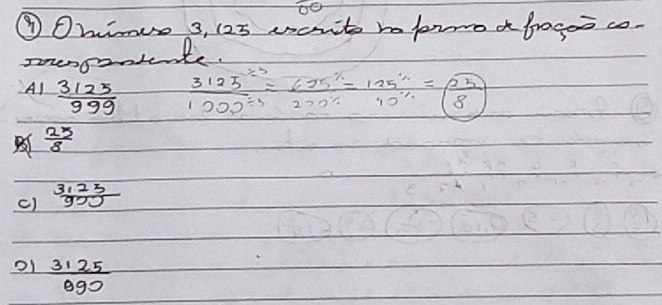 60
④ O número 3,125 escrito na forma de fração co-
rrespondente.
A) 3125/999 3125÷5/1000÷5 = 625÷5/200÷5 = 125÷5/40÷5 = 25/8
B) 25/8
C) 3125/900
D) 3125/990